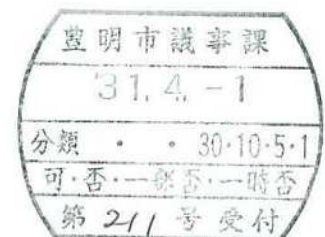 豊明市議事課
'31.4.-1
分類 ・ ・ 30・10・5・1
可・否・一部否・一時否
第 211 号 受付